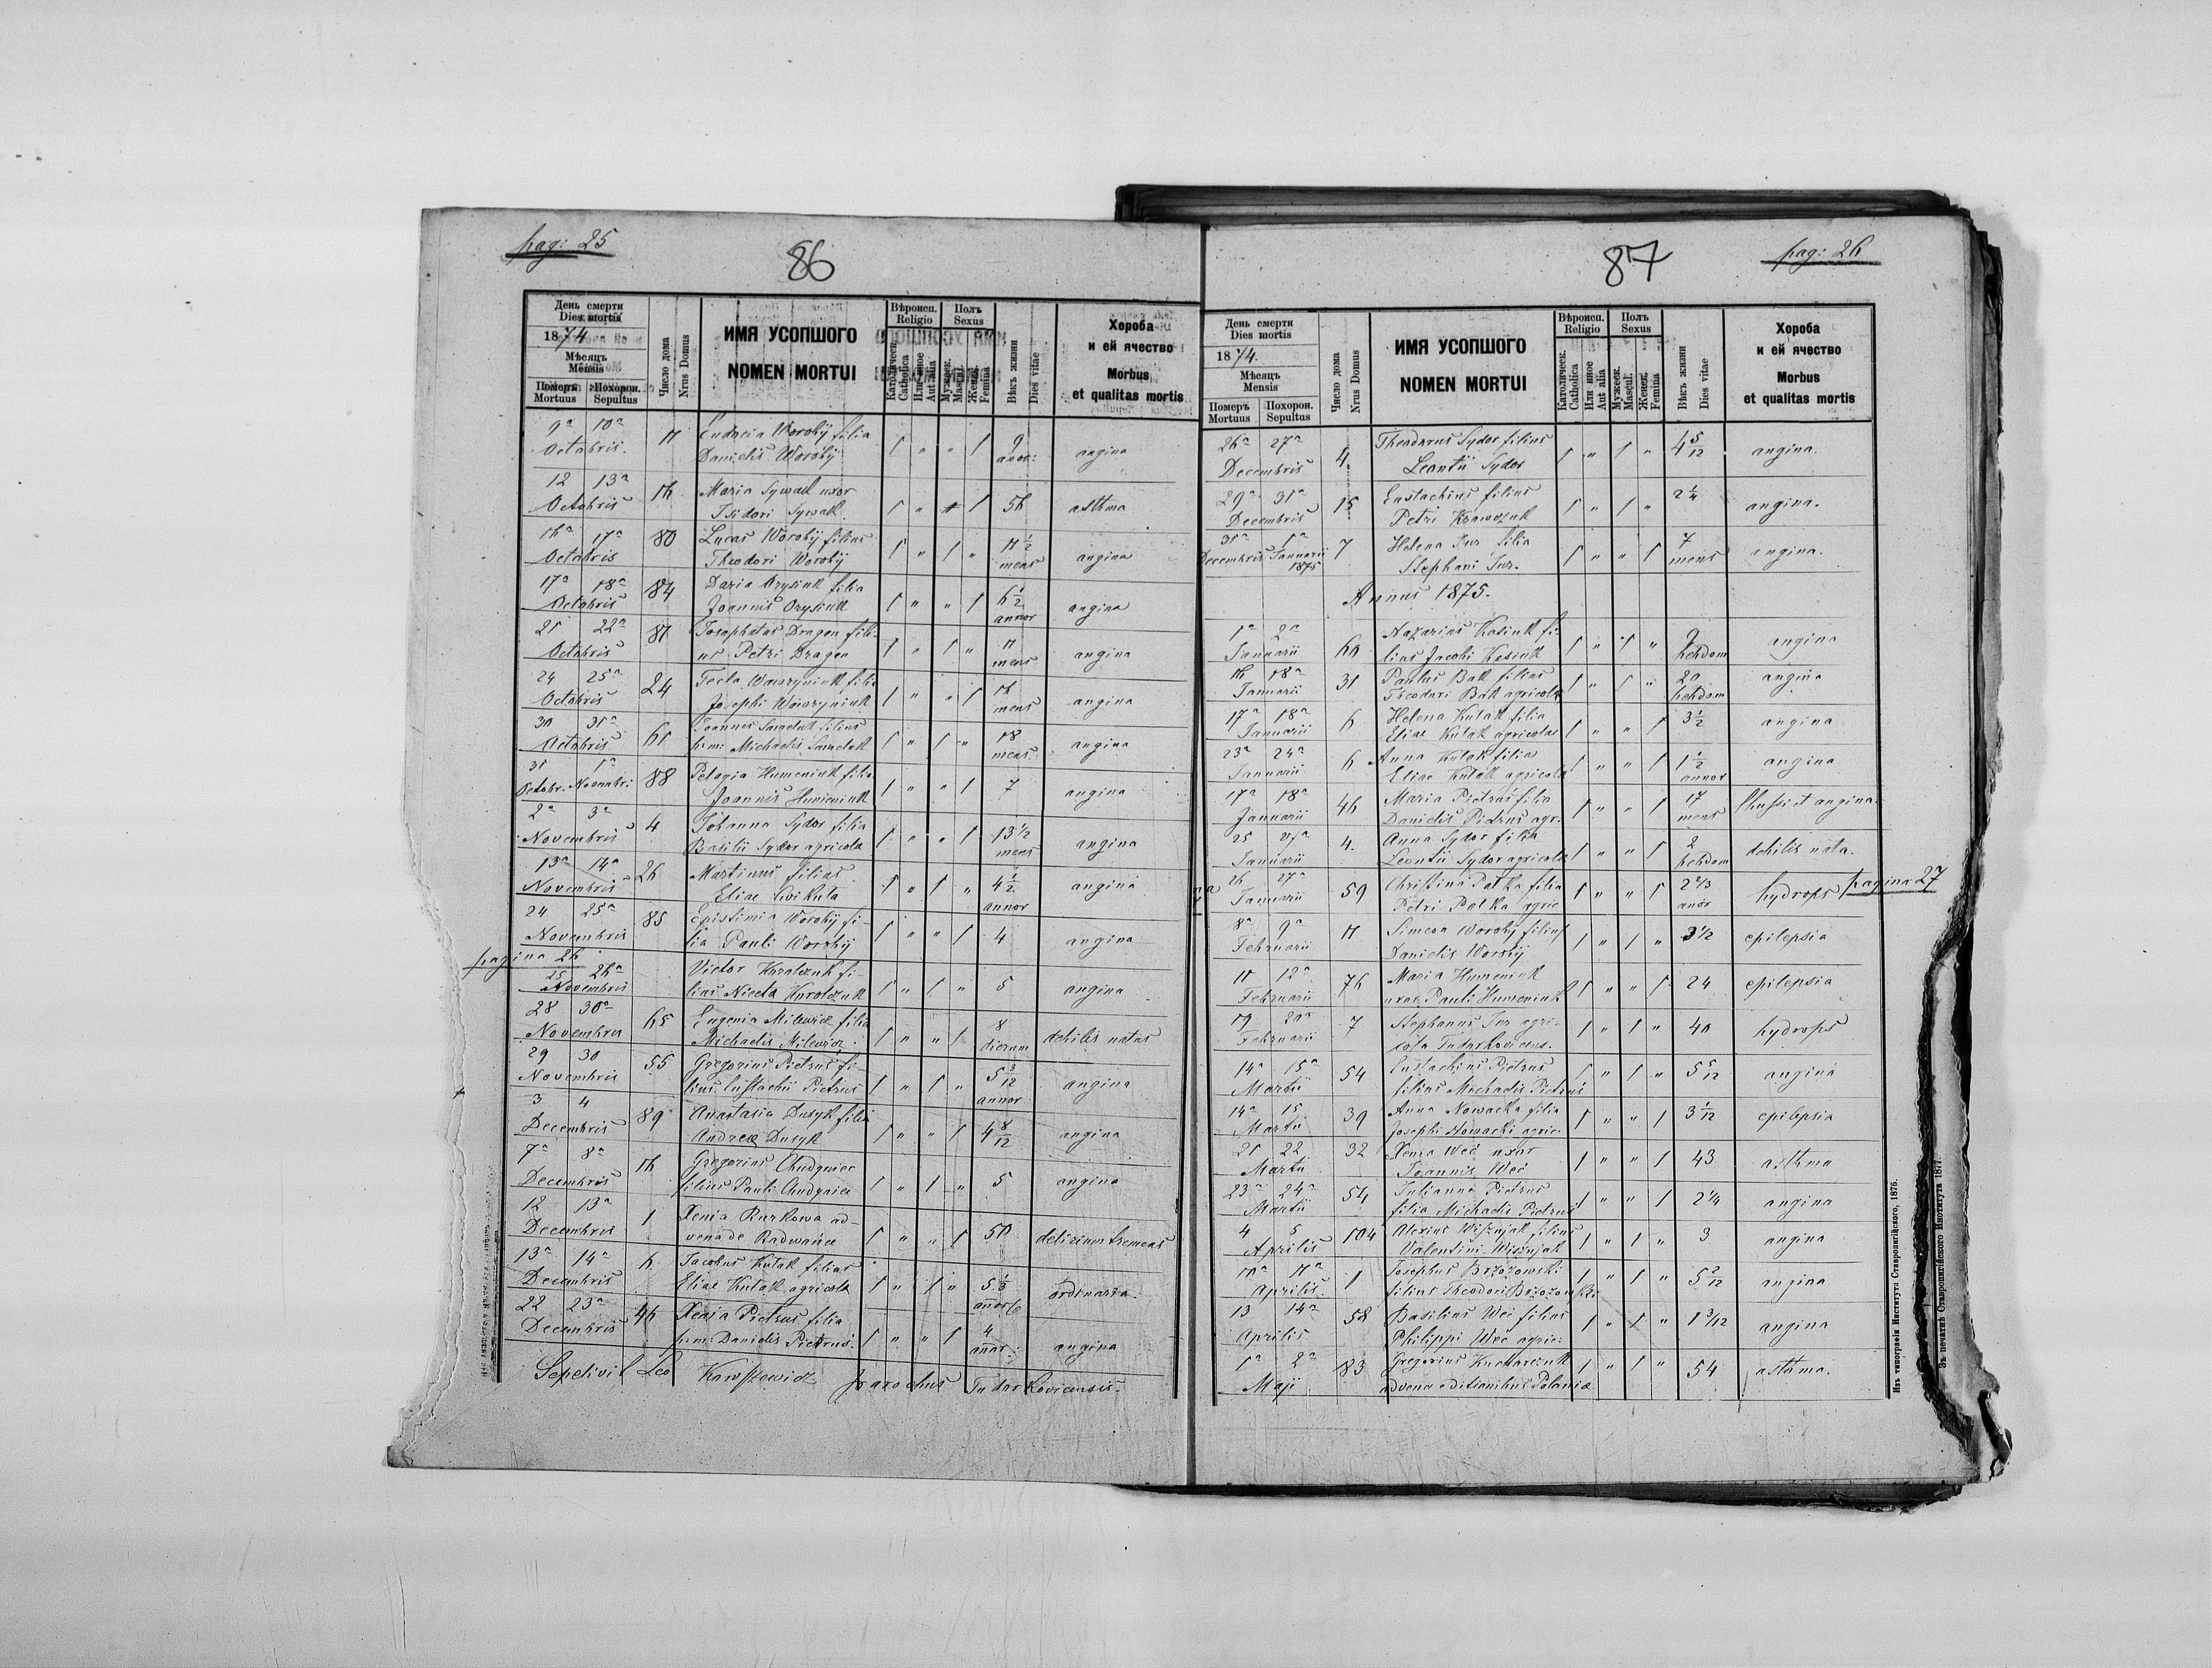 pag: 25
86
День смерти
Dies mortis
1874
Мѣсяцъ
Mensis
Померъ Похорон.
Mortuus Sepultus
Число дома
Nrus Domus
ИМЯ УСОПШОГО
NOMEN MORTUI
Вѣроисп.
Religio
Католическ.
Catholica
Или иное
Aut alia
Полъ
Sexus
Мужеск.
Mascul.
Женск.
Femina
Вѣкъ жизни
Dies vitae
Хороба
и ей ячество
Morbus
et qualitas mortis
9a 10a Eudocia Worobij filia 9
Octobris. 11 Danielis Worobij 1 " " 1 anor: angina
12 13a Maria Sywak uxor
Octobris 16 Isidori Sywak. 1 " 1 56 asthma
16a 17a 80 Lucas Worobij filius 11 1/2
Octobris Theodori Worobij 1 " 1 " mens angina
17a 18a 84 Daria Orysiuk filia 6 1/2
Octobris Joannis Orysiuk 1 " " 1 annor angina
21 22a 87 Josaphatus Dragan fili- 11
Octobris us Petri Dragan 1 " 1 " mens angina
24 25a 24 Tecla Wawryniuk filia 16
Octobris Josephi Wawryniuk 1 " " 1 mens angina
30 31a 61 Joannes Sameluk filius 18
Octobris p: m: Michaelis Sameluk 1 " 1 " mens. angina
31 1a 88 Pelagia Humeniuk filia
Octobr. Novembr: Joannis Humeniuk 1 " " 1 7 angina
2a 3a 4 Johanna Sydor filia 13 1/2
Novembris Basilii Sydor agricola 1 " " 1 mens angina
13a 14a 26 Martinus filius 4 1/2
Novembris Eliae 1 " 1 " annor angina
24 25a 85 Epistimia Worobij fi-
Novembris lia Pauli Worobij 1 " " 1 4 angina
pagina 26
25 26a Victor fi-
Novembris lius 1 " 1 " 5 angina
28 30a 65 Eugenia Milewicz filia 8
Novembris Michaelis Milewicz. 1 " " 1 dierum debilis natus
29 30 55 Gregorius Pietrus fi- 5 3/12
Novembris lius Eustachii Pietrus 1 " 1 " annor angina
3 4 89 Anastasia Dusyk filia
Decembris Andreae Dusyk 1 " " 1 4 8/12 angina
7a 8a 16 Gregorius Chudyniec
Decembris filius Pauli Chudyniec 1 " 1 " 5 angina
12 13a 1 Xenia Rurkowa ad-
Decembris vena de Radwańce 1 " " 1 50 delirium tremens
13a 14a 6 Jacobus Kutak filius
Decembris Eliae Kutak agricola 1 " 1 " 5 1/3 anor ordinaria.
22 23a 46 Xenia Pietrus filia 4
Decembris p: m: Danielis Pietrus. 1 " " 1 anor: angina
Sepelivit Leo parochus Tudorkovicensis.
87
pag: 26
День смерти
Dies mortis
1874.
Мѣсяцъ
Mensis
Померъ Похорон.
Mortuus Sepultus
Число дома
Nrus Domus
ИМЯ УСОПШОГО
NOMEN MORTUI
Вѣроисп.
Religio
Католическ.
Catholica
Или иное
Aut alia
Полъ
Sexus
Мужеск.
Mascul.
Женск.
Femina
Вѣкъ жизни
Dies vitae
Хороба
и ей ячество
Morbus
et qualitas mortis
26a 27a Theodorus Sydor filius
Decembris 4. Leontii Sydor 1 " 1 " 4 5/12 angina.
29a 31a Eustachius filius
Decembris 15 Petri Krawczuk 1 " 1 " 2 1/4 angina.
31a 1a 7 Helena Jur filia 7
Decembris Januarii 1875 Stephani Jur. 1 " " 1 mens angina.
Annus 1875.
1a 2a Nazarius Kosiuk fi- 9
Januarii 60 lius Jacobi Kosiuk 1 " 1 " hebdom angina
16 18a 31 Paulus Bak filius 20
Januarii Theodori Bak agricola 1 " 1 " hebdom angina
17a 18a 6 Helena Kutak filia
Januarii Eliae Kutak agricolae 1 " " 1 3 1/2 angina
23a 24a 6 Anna Kutak filia 1 1/2
Januarii Eliae Kutak agricola 1 " " 1 annor angina
17a 18a 46 Maria Pietrus filia 17
Januarii Danielis Pietrus agr. 1 " " 1 mens tussi et angina.
25 27a 4. Anna Sydor filia 2
Januarii Leontii Sydor agricola 1 " " 1 hebdom debilis nata.
26 27a 59 Christina Palka filia 2 2/3
Januarii Petri Palka agric 1 " " 1 anor hydrops pagina 27
8a 9a 11 Simeon Worobij filius
Februarii Danielis Worobij 1 " 1 " 3 1/2 epilepsia
11 12a 76 Maria Humeniuk
Februarii uxor Pauli Humeniuk 1 " " 1 24 epilepsia
19 20a 7 Stephanus Jur agri-
Februarii cola Tudorkovicens. 1 " 1 " 40 hydrops
14a 15a 54 Eustachius Pietrus
Martii filius Michaelis Pietrus 1 " 1 " 5 5/12 angina
14a 15 39 Anna Nowacka filia
Martii Josephi Nowacki agric. 1 " " 1 3 1/12 epilepsia
21 22 32 Xenia Weć uxor
Martii Joannis Weć 1 " " 1 43 asthma
23a 24a 54 Julianna Pietrus
Martii filia Michaelis Pietrus 1 " " 1 2 1/4 angina
4 5 104 Alexius Wisznjak filius
Aprilis Valentini Wiszniak 1 " 1 " 3 angina
10a 11a 1 Josephus Brzozowski
Aprilis. filius Theodori Brzozowski 1 " 1 " 5 2/12 angina
13 14a 58 Basilius Weć filius
Aprilis Philippi Weć agric: 1 " 1 " 1 3/12 angina
1a 2a 83 Gregorius Kucharczuk
Maji advena e ditionibus Poloniae 1 " 1 " 54 asthma.
Изъ типографіи Института Ставропигійского, 1876.
Зъ печатнѣ Ставропигійского Института 1877.